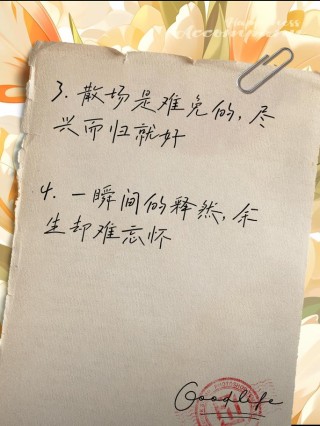 3. 散场是难免的,尽
兴而归就好
4. 一瞬间的释然,余
生却难忘怀
Goodlife